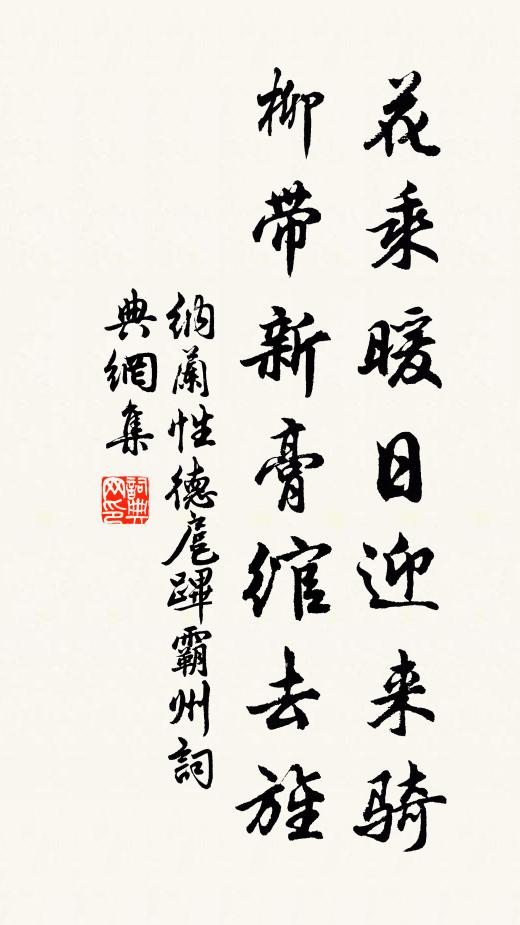 花乘暖日迎来骑
柳带新膏绾去旌
纳蘭性德扈蹕霸州詞
典網集
詞典网印